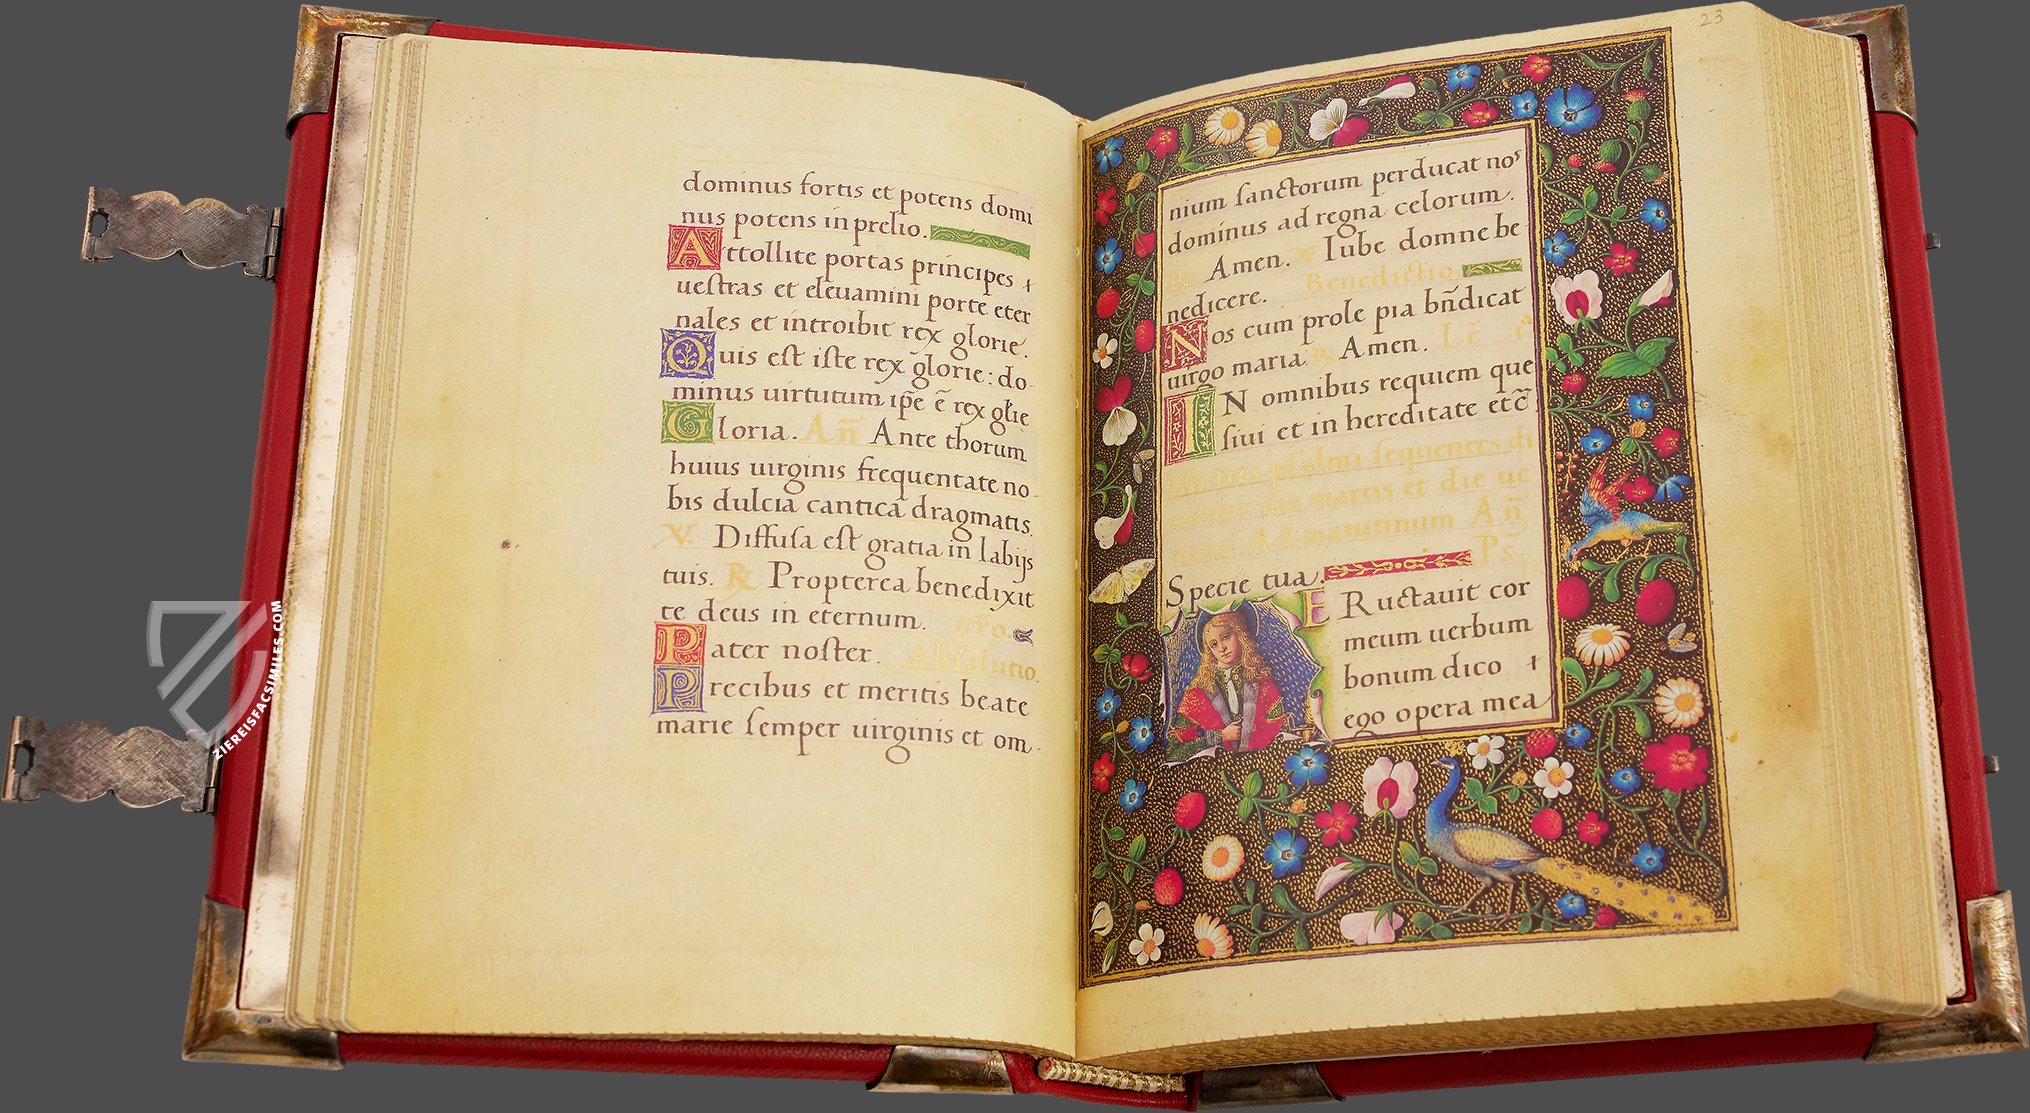 dominus fortis et potens domi
nus potens in prelio.
Attollite portas principes
uestras et eleuamini porte eter
nales et introibit rex glorie.
Quis est iste rex glorie: do
minus uirtutum ip̄e ē rex gl̄ie
Gloria. An̄ Ante thorum
huius uirginis frequentate no
bis dulcia cantica dragmatis.
V. Diffusa est gratia in labijs
tuis. ℟ Propterea benedixit
te deus in eternum. or̄o.
Pater noster. Absolutio.
Precibus et meritis beate
marie semper uirginis et om
23
nium sanctorum perducat nos
dominus ad regna celorum.
℟ Amen. V Iube domne be
nedicere. Benedictio
Nos cum prole pia bn̄dicat
uirgo maria ℟ Amen. Lc̄ i
IN omnibus requiem que
siui et in hereditate etc̄
psalmi sequentes di
martis et die ue
Ad matutinum An̄
Specie tua. Ps̄
ERuctauit cor
meum uerbum
bonum dico
ego opera mea
ZIEREISFACSIMILES.COM